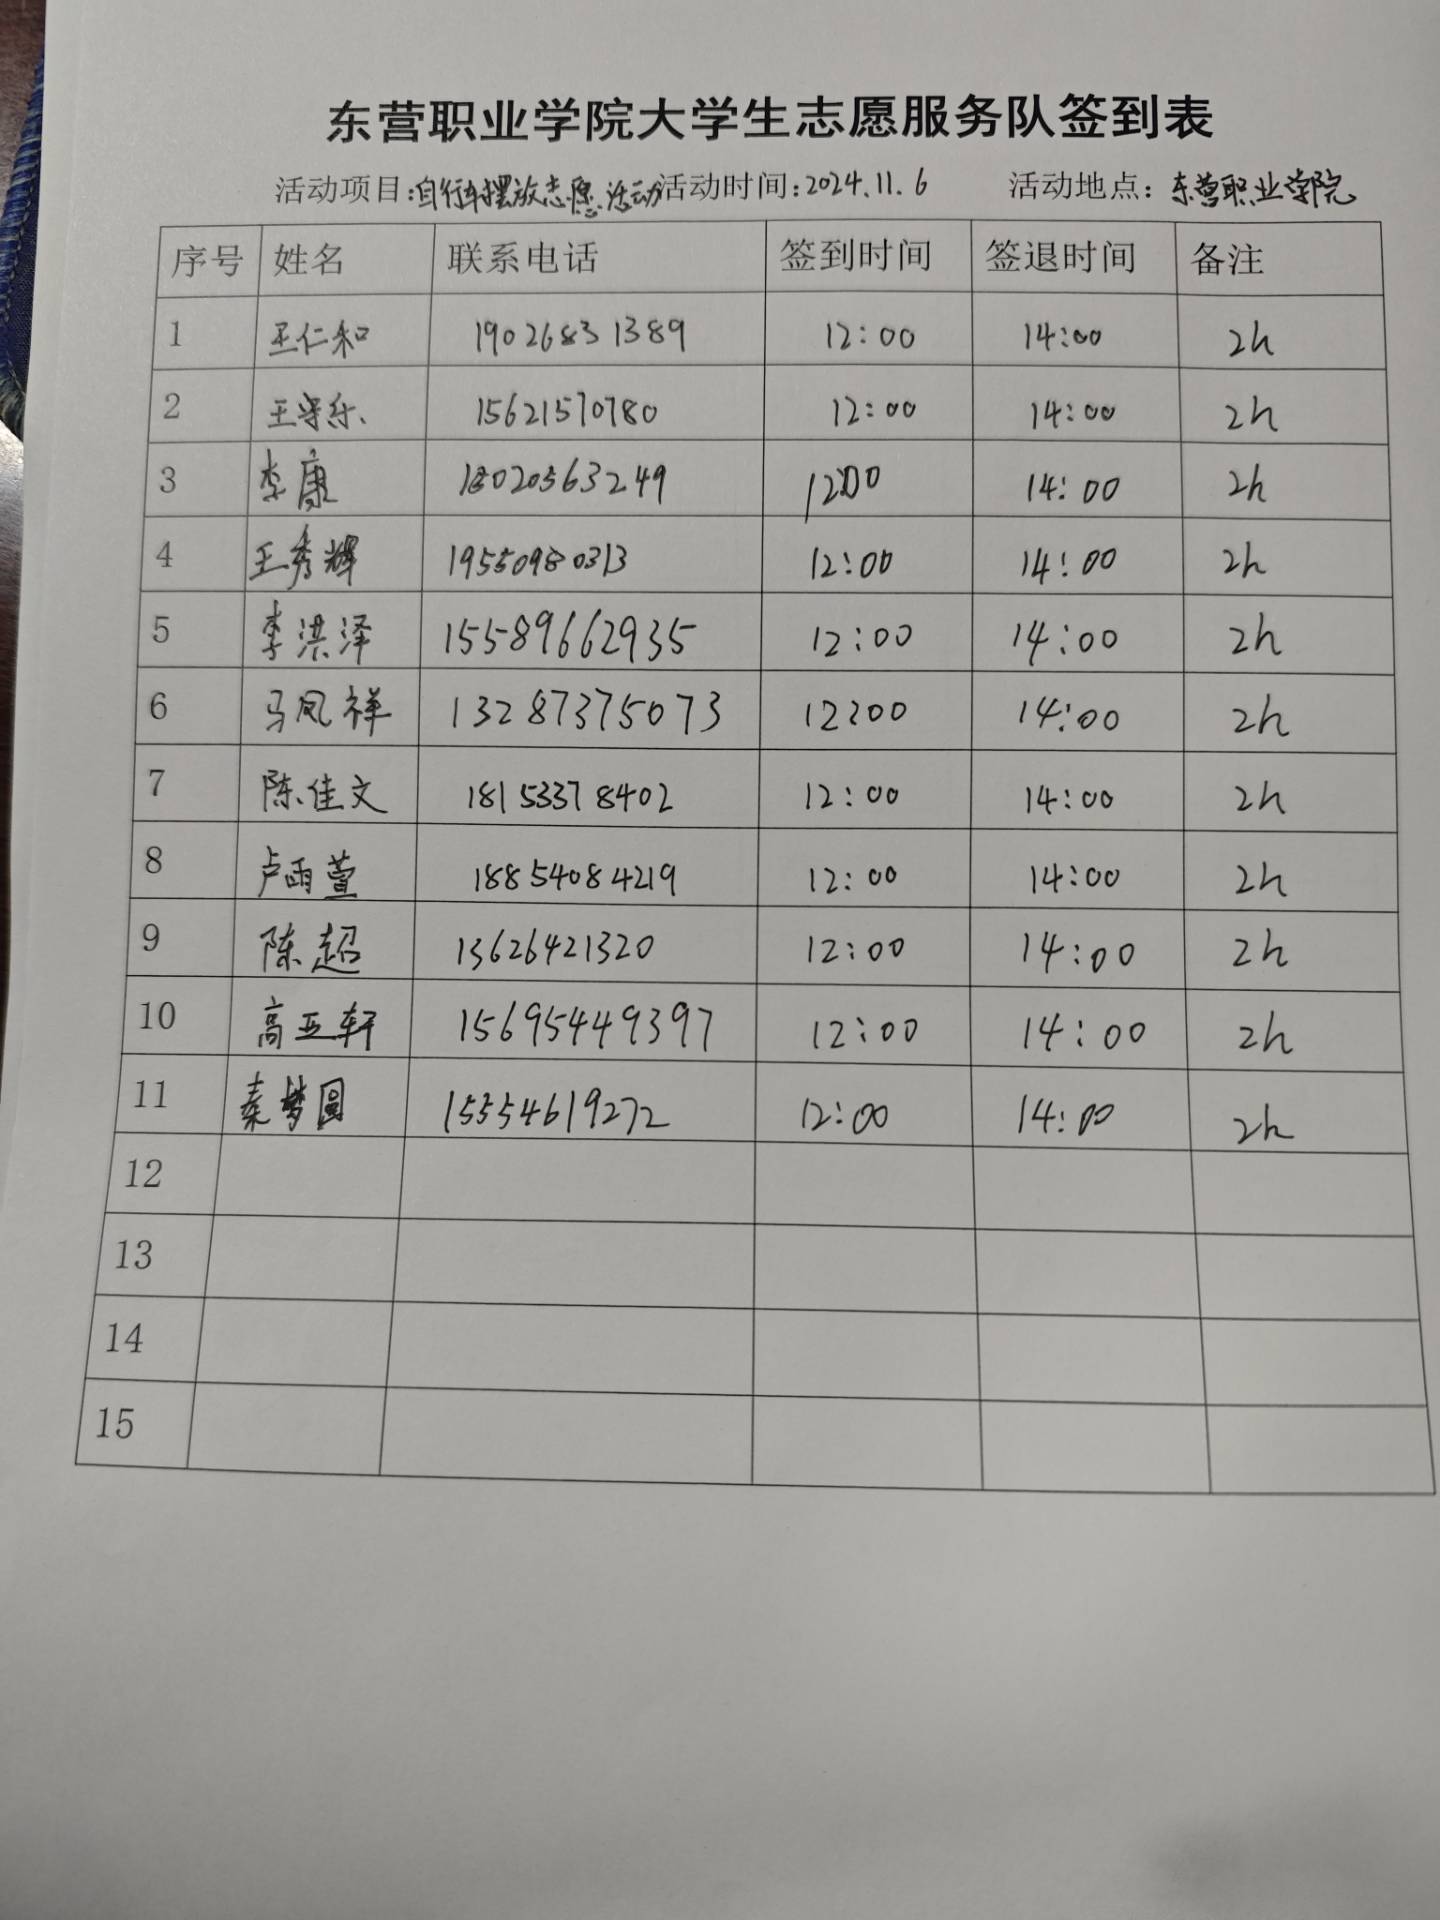 东营职业学院大学生志愿服务队签到表
活动项目:自行车摆放志愿活动 活动时间:2024.11.6 活动地点:东营职业学院
序号 姓名 联系电话 签到时间 签退时间 备注
1 王仁和 19026831389 12:00 14:00 2h
2 15621570780 12:00 14:00 2h
3 李康 18020563249 12:00 14:00 2h
4 王秀辉 19550980313 12:00 14:00 2h
5 李洪泽 15589662935 12:00 14:00 2h
6 马凤祥 13287375073 12:00 14:00 2h
7 陈佳文 18153378402 12:00 14:00 2h
8 卢雨萱 18854084219 12:00 14:00 2h
9 陈超 13626421320 12:00 14:00 2h
10 高亚轩 15695449397 12:00 14:00 2h
11 秦梦圆 15554619272 12:00 14:00 2h
12
13
14
15